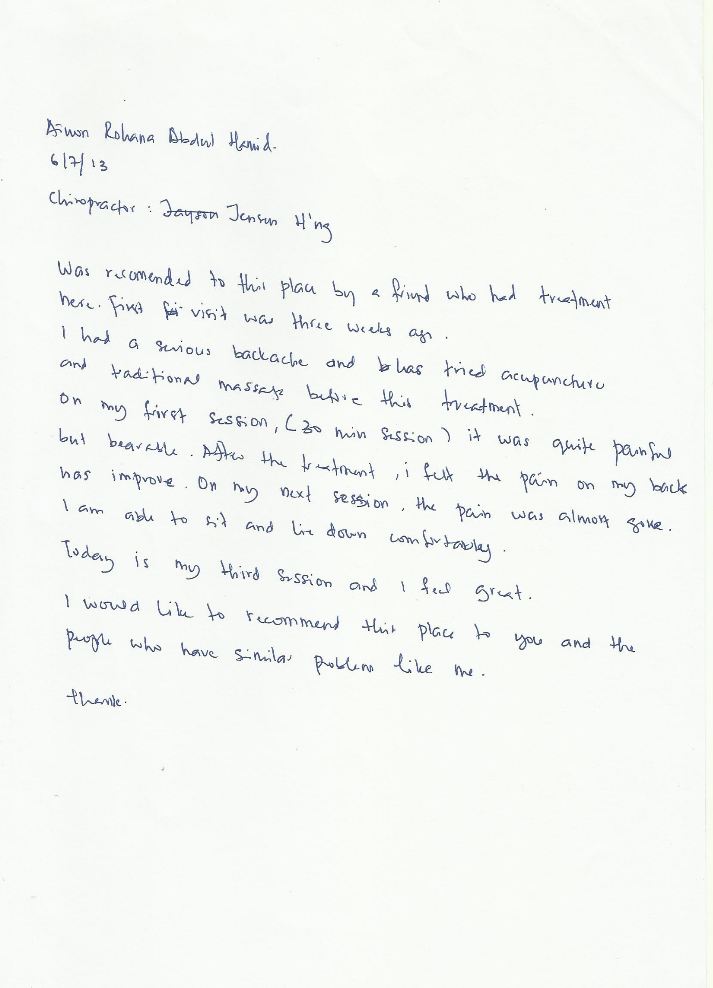 Aimon Rohana Abdul Hamid.
6/7/13
Chiropractor : Jayson Jensen H'ng
Was recomended to this place by a friend who had treatment
here. First visit was three weeks ago.
I had a serious backache and has tried acupuncture
and traditional massage before this treatment.
On my first session, (30 min session) it was quite painful
but bearable. After the treatment, i felt the pain on my back
has improve. On my next session, the pain was almost gone.
I am able to sit and lie down comfortably.
Today is my third session and I feel great.
I would like to recommend this place to you and the
people who have similar problem like me.
thank.